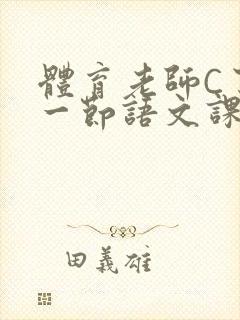 體育老師C
一節語文課
田義雄